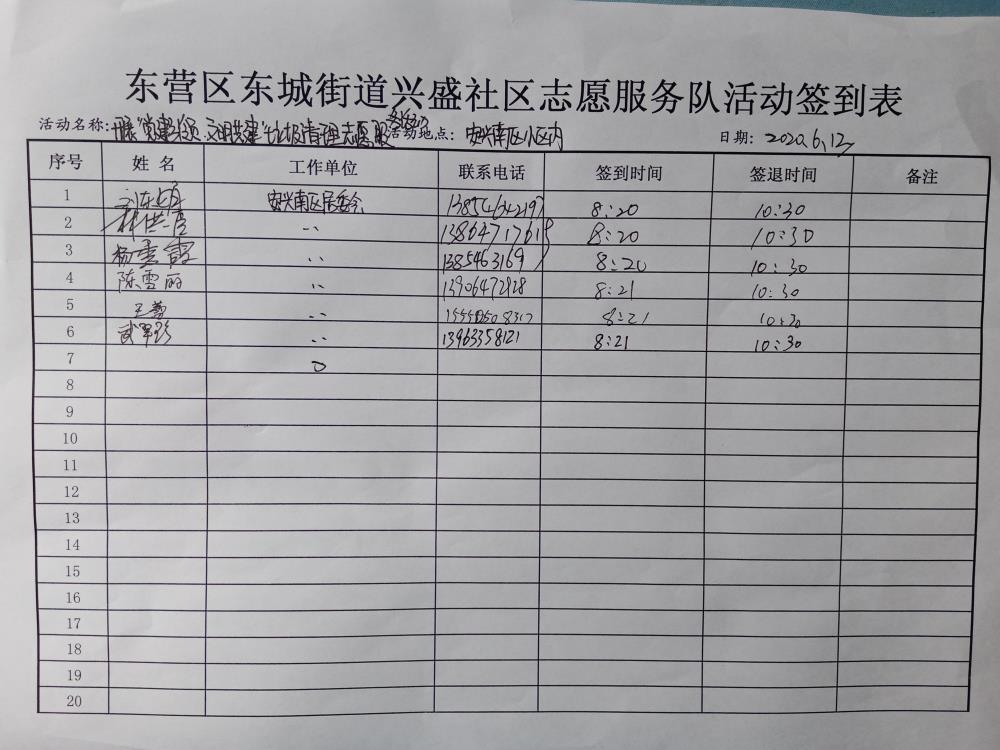 东营区东城街道兴盛社区志愿服务队活动签到表
活动名称: 开展"党建引领 文明共建"垃圾清理志愿服务活动 活动地点: 安兴南区小区内 日期: 2020.6.12
序号 姓名 工作单位 联系电话 签到时间 签退时间 备注
1 安兴南区居委会 13854642197 8:20 10:30
2 〃 8:20 10:30
3 杨雪霞 〃 8:20 10:30
4 陈雪丽 〃 13906472928 8:21 10:30
5 王蕾 〃 8:21 10:30
6 〃 13963358121 8:21 10:30
7
8
9
10
11
12
13
14
15
16
17
18
19
20